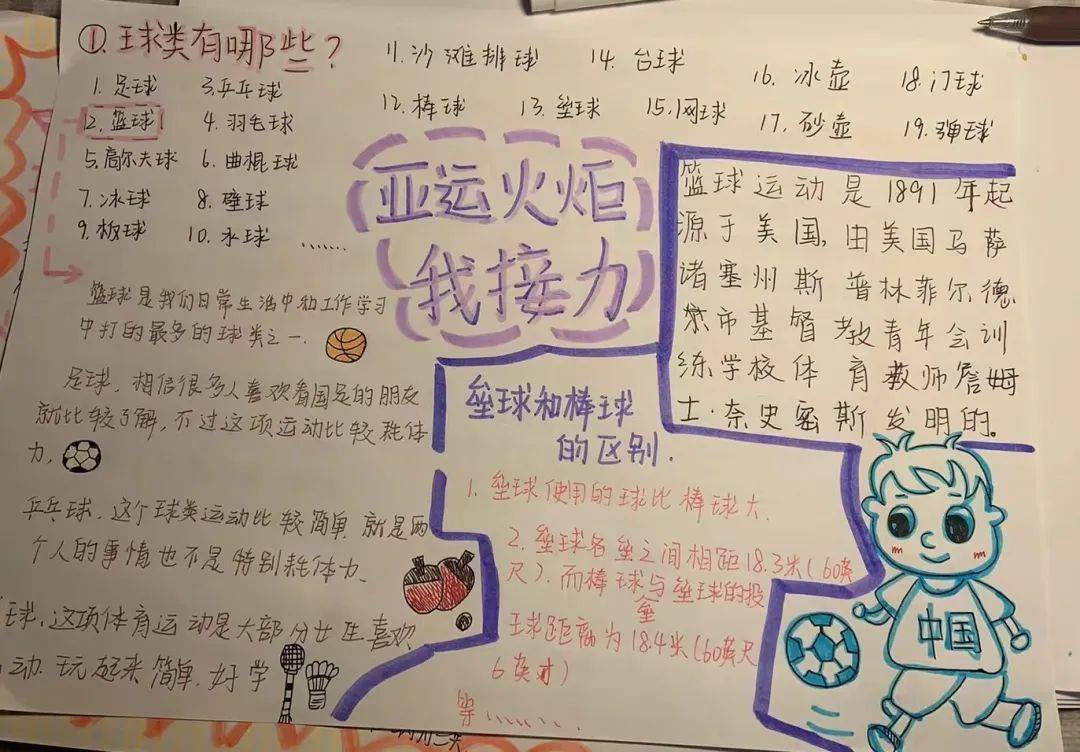 ①.球类有哪些?
1.足球 3.乒乓球
2.篮球 4.羽毛球
5.高尔夫球 6.曲棍球
7.冰球 8.壁球
9.板球 10.水球 ......
11.沙滩排球 14.台球
12.棒球 13.垒球 15.网球
16.冰壶 18.门球
17.砂壶 19.弹球
亚运火炬
我接力
篮球运动是1891年起
源于美国,由美国马萨
诸塞州斯普林菲尔德
市基督教青年会训
练学校体育教师詹姆
士·奈史密斯发明的。
篮球是我们日常生活中和工作学习
中打的最多的球类之一.
足球.相信很多人喜欢看国足的朋友
就比较了解,不过这项运动比较耗体
力,
乒乓球.这个球类运动比较简单.就是两
个人的事情也不是特别耗体力、
球、这项体育运动是大部分女生喜欢
动.玩起来简单.好学
垒球和棒球
的区别.
1.垒球使用的球比棒球大.
2.垒球各垒之间相距18.3米(60英
尺).而棒球与垒球的投
垒
球距离为18.4米(60英尺
6英寸)
等.......
中国